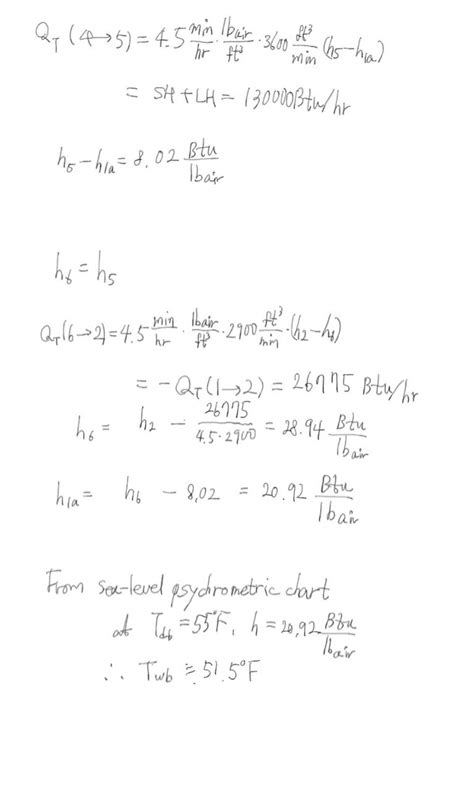 Q_T (4→5) = 4.5 min/hr · lbair/ft³ · 3600 ft³/min (h5-h1a)
= SH+LH = 130000Btu/hr
h5-h1a = 8.02 Btu/lbair
h6 = h5
Q_T(6→2) = 4.5 min/hr · lbair/ft³ · 2900 ft³/min · (h2-h6)
= -Q_T(1→2) = 26775 Btu/hr
h6 = h2 - 26775/4.5·2900 = 28.94 Btu/lbair
h1a = h6 - 8.02 = 20.92 Btu/lbair
From sea-level psychrometric chart
at Tdb = 55°F, h = 20.92 Btu/lbair
∴ Twb ≅ 51.5°F